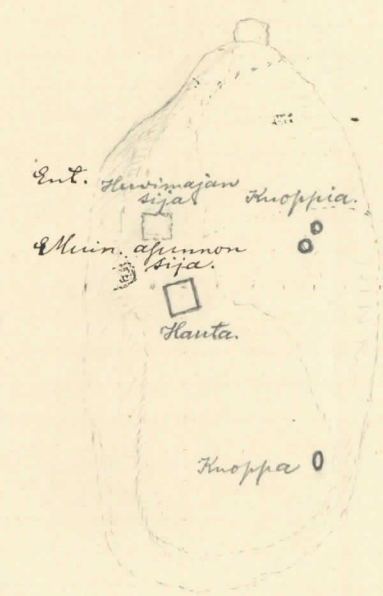 Ent. Huvimajan
sija.
Kuoppia.
Muin. asunnon
sija.
Hauta.
Kuoppa